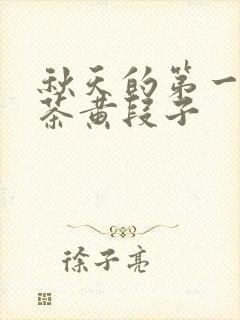 秋天的第一
茶黄段子
徐子亮